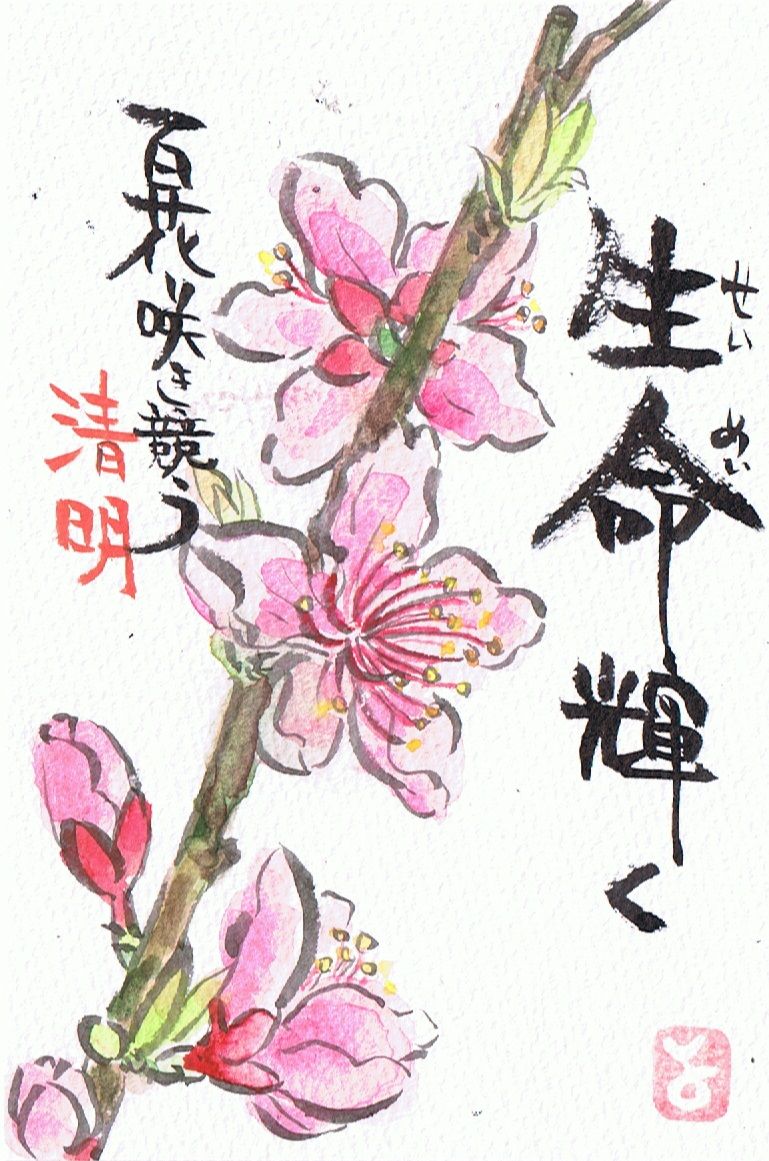 生命輝く
せい
めい
百花咲き競う
清明